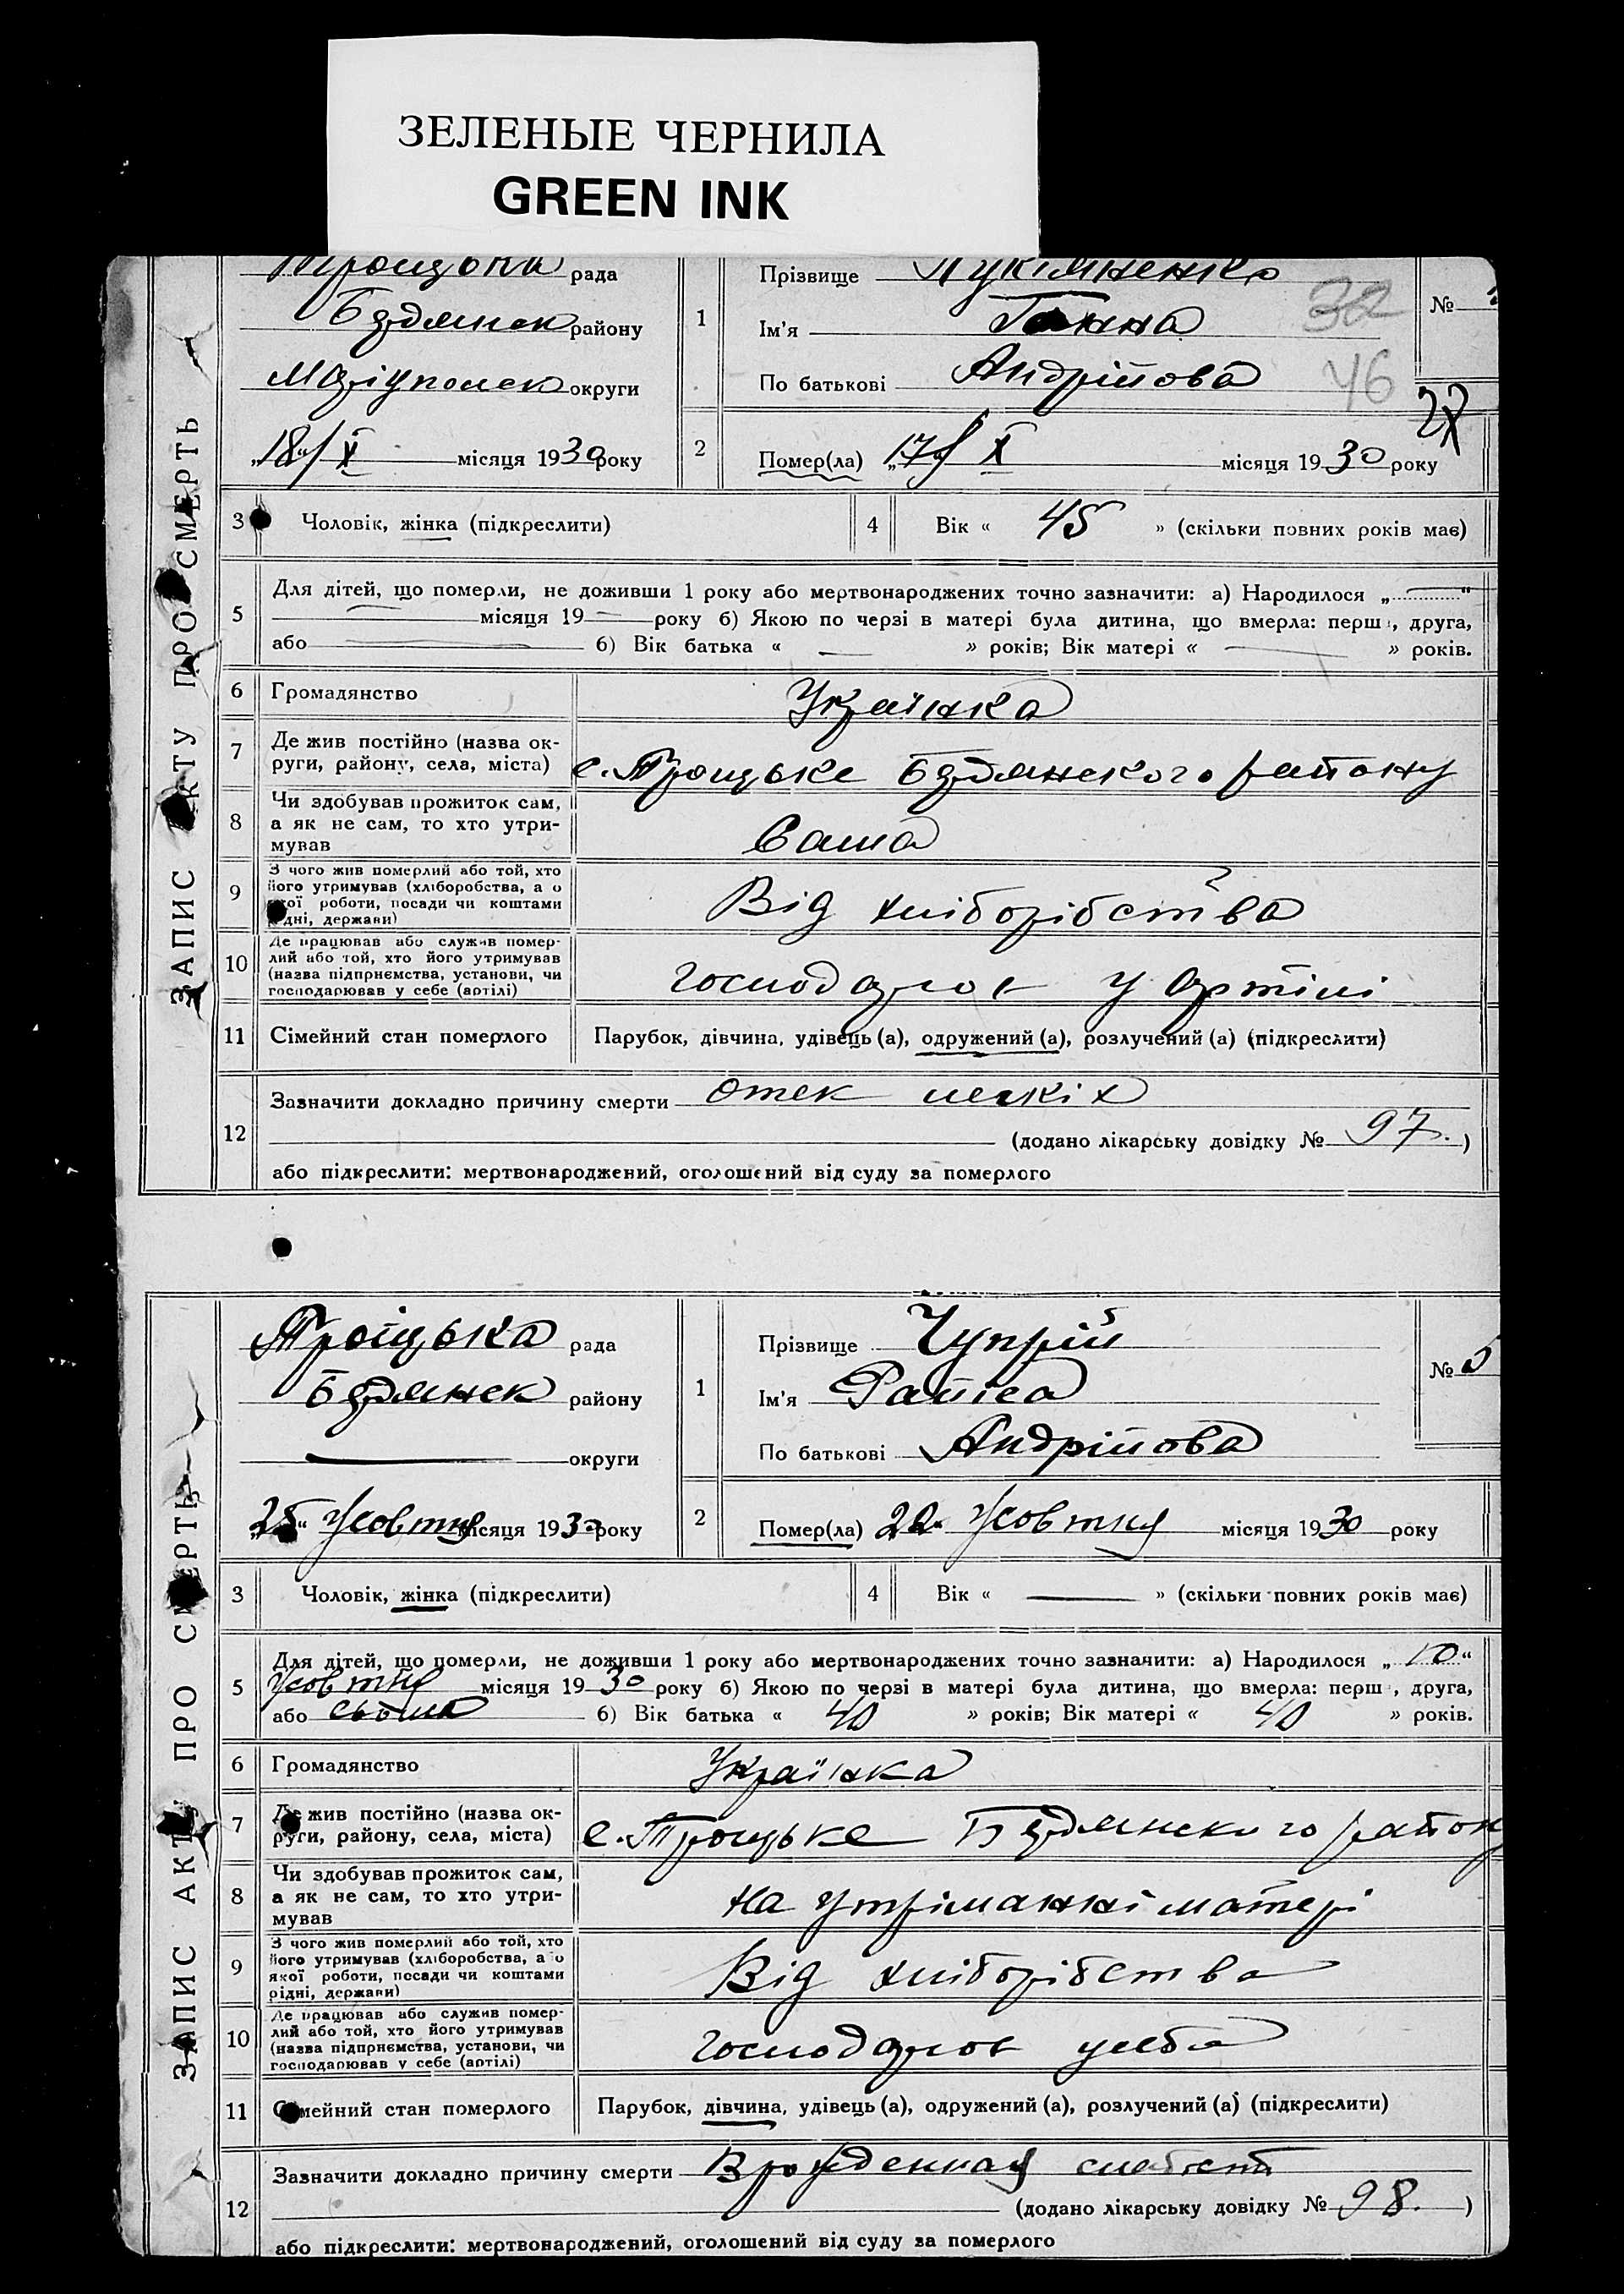 ЗЕЛЕНЫЕ ЧЕРНИЛА
GREEN INK
ЗАПИС АКТУ ПРО СМЕРТЬ
Троцька рада
Бердянск району
Маріупольск округи
„18“/X місяця 1930 року
1
Прізвище
Ім'я Ганна
По батькові Андрійова
№
32
46
27
2
Помер(ла) „17“/X місяця 1930 року
3 Чоловік, жінка (підкреслити)
4 Вік « 45 » (скільки повних років має)
5 Для дітей, що померли, не доживши 1 року або мертвонароджених точно зазначити: а) Народилося „ — “
— місяця 19 — року б) Якою по черзі в матері була дитина, що вмерла: перша, друга,
або — б) Вік батька « — » років; Вік матері « — » років.
6 Громадянство Українка
7 Де жив постійно (назва ок-
руги, району, села, міста) с. Троцьке Бердянского району
8 Чи здобував прожиток сам,
а як не сам, то хто утри-
мував Сама
9 З чого жив померлий або той, хто
його утримував (хліборобства, або
якої роботи, посади чи коштами
рідні, держави) Від хліборібства
10 Де працював або служив помер-
лий або той, хто його утримував
(назва підприємства, установи, чи
господарював у себе (артілі) господарює у артілі
11 Сімейний стан померлого Парубок, дівчина, удівець (а), одружений (а), розлучений (а) (підкреслити)
12 Зазначити докладно причину смерти Отек легкіх
(додано лікарську довідку № 97.)
або підкреслити: мертвонароджений, оголошений від суду за померлого
ЗАПИС АКТУ ПРО СМЕРТЬ
Троїцька рада
Бердянск району
— округи
„25“ Жовтня місяця 1930 року
1
Прізвище Чуприй
Ім'я Раїса
По батькові Андрійова
№ 5
2
Помер(ла) 22 Жовтня місяця 1930 року
3 Чоловік, жінка (підкреслити)
4 Вік « — » (скільки повних років має)
5 Для дітей, що померли, не доживши 1 року або мертвонароджених точно зазначити: а) Народилося „ 10 “
Жовтня місяця 1930 року б) Якою по черзі в матері була дитина, що вмерла: перша, друга,
або сьома б) Вік батька « 40 » років; Вік матері « 40 » років.
6 Громадянство Українка
7 Де жив постійно (назва ок-
руги, району, села, міста) с. Троцьке Бердянского району
8 Чи здобував прожиток сам,
а як не сам, то хто утри-
мував На утріманні матері
9 З чого жив померлий або той, хто
його утримував (хліборобства, або
якої роботи, посади чи коштами
рідні, держави) Від хліборібства
10 Де працював або служив помер-
лий або той, хто його утримував
(назва підприємства, установи, чи
господарював у себе (артілі) господарює у себе
11 Сімейний стан померлого Парубок, дівчина, удівець (а), одружений (а), розлучений (а) (підкреслити)
12 Зазначити докладно причину смерти Врожденная слабість
(додано лікарську довідку № 98.)
або підкреслити: мертвонароджений, оголошений від суду за померлого